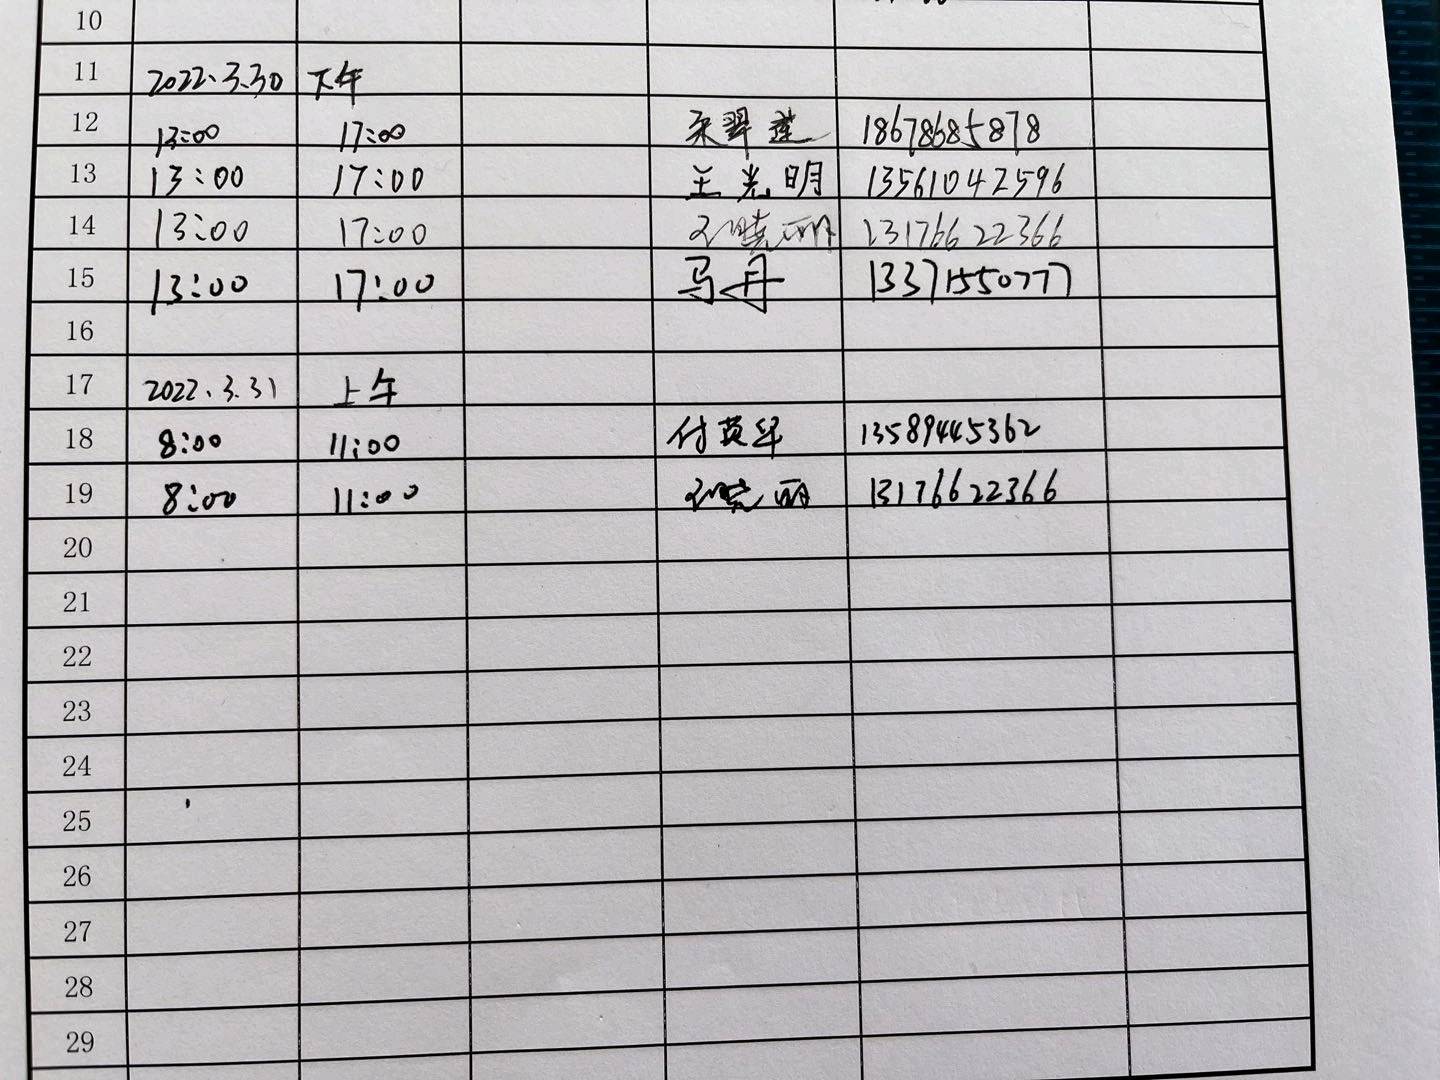 10
11 2022.3.30 下午
12 13:00 17:00 翠莲 18678685878
13 13:00 17:00 王光明 13561042596
14 13:00 17:00 晓丽 13176622366
15 13:00 17:00 马丹 13371550777
16
17 2022.3.31 上午
18 8:00 11:00 付英华 13589445362
19 8:00 11:00 晓丽 13176622366
20
21
22
23
24
25
26
27
28
29